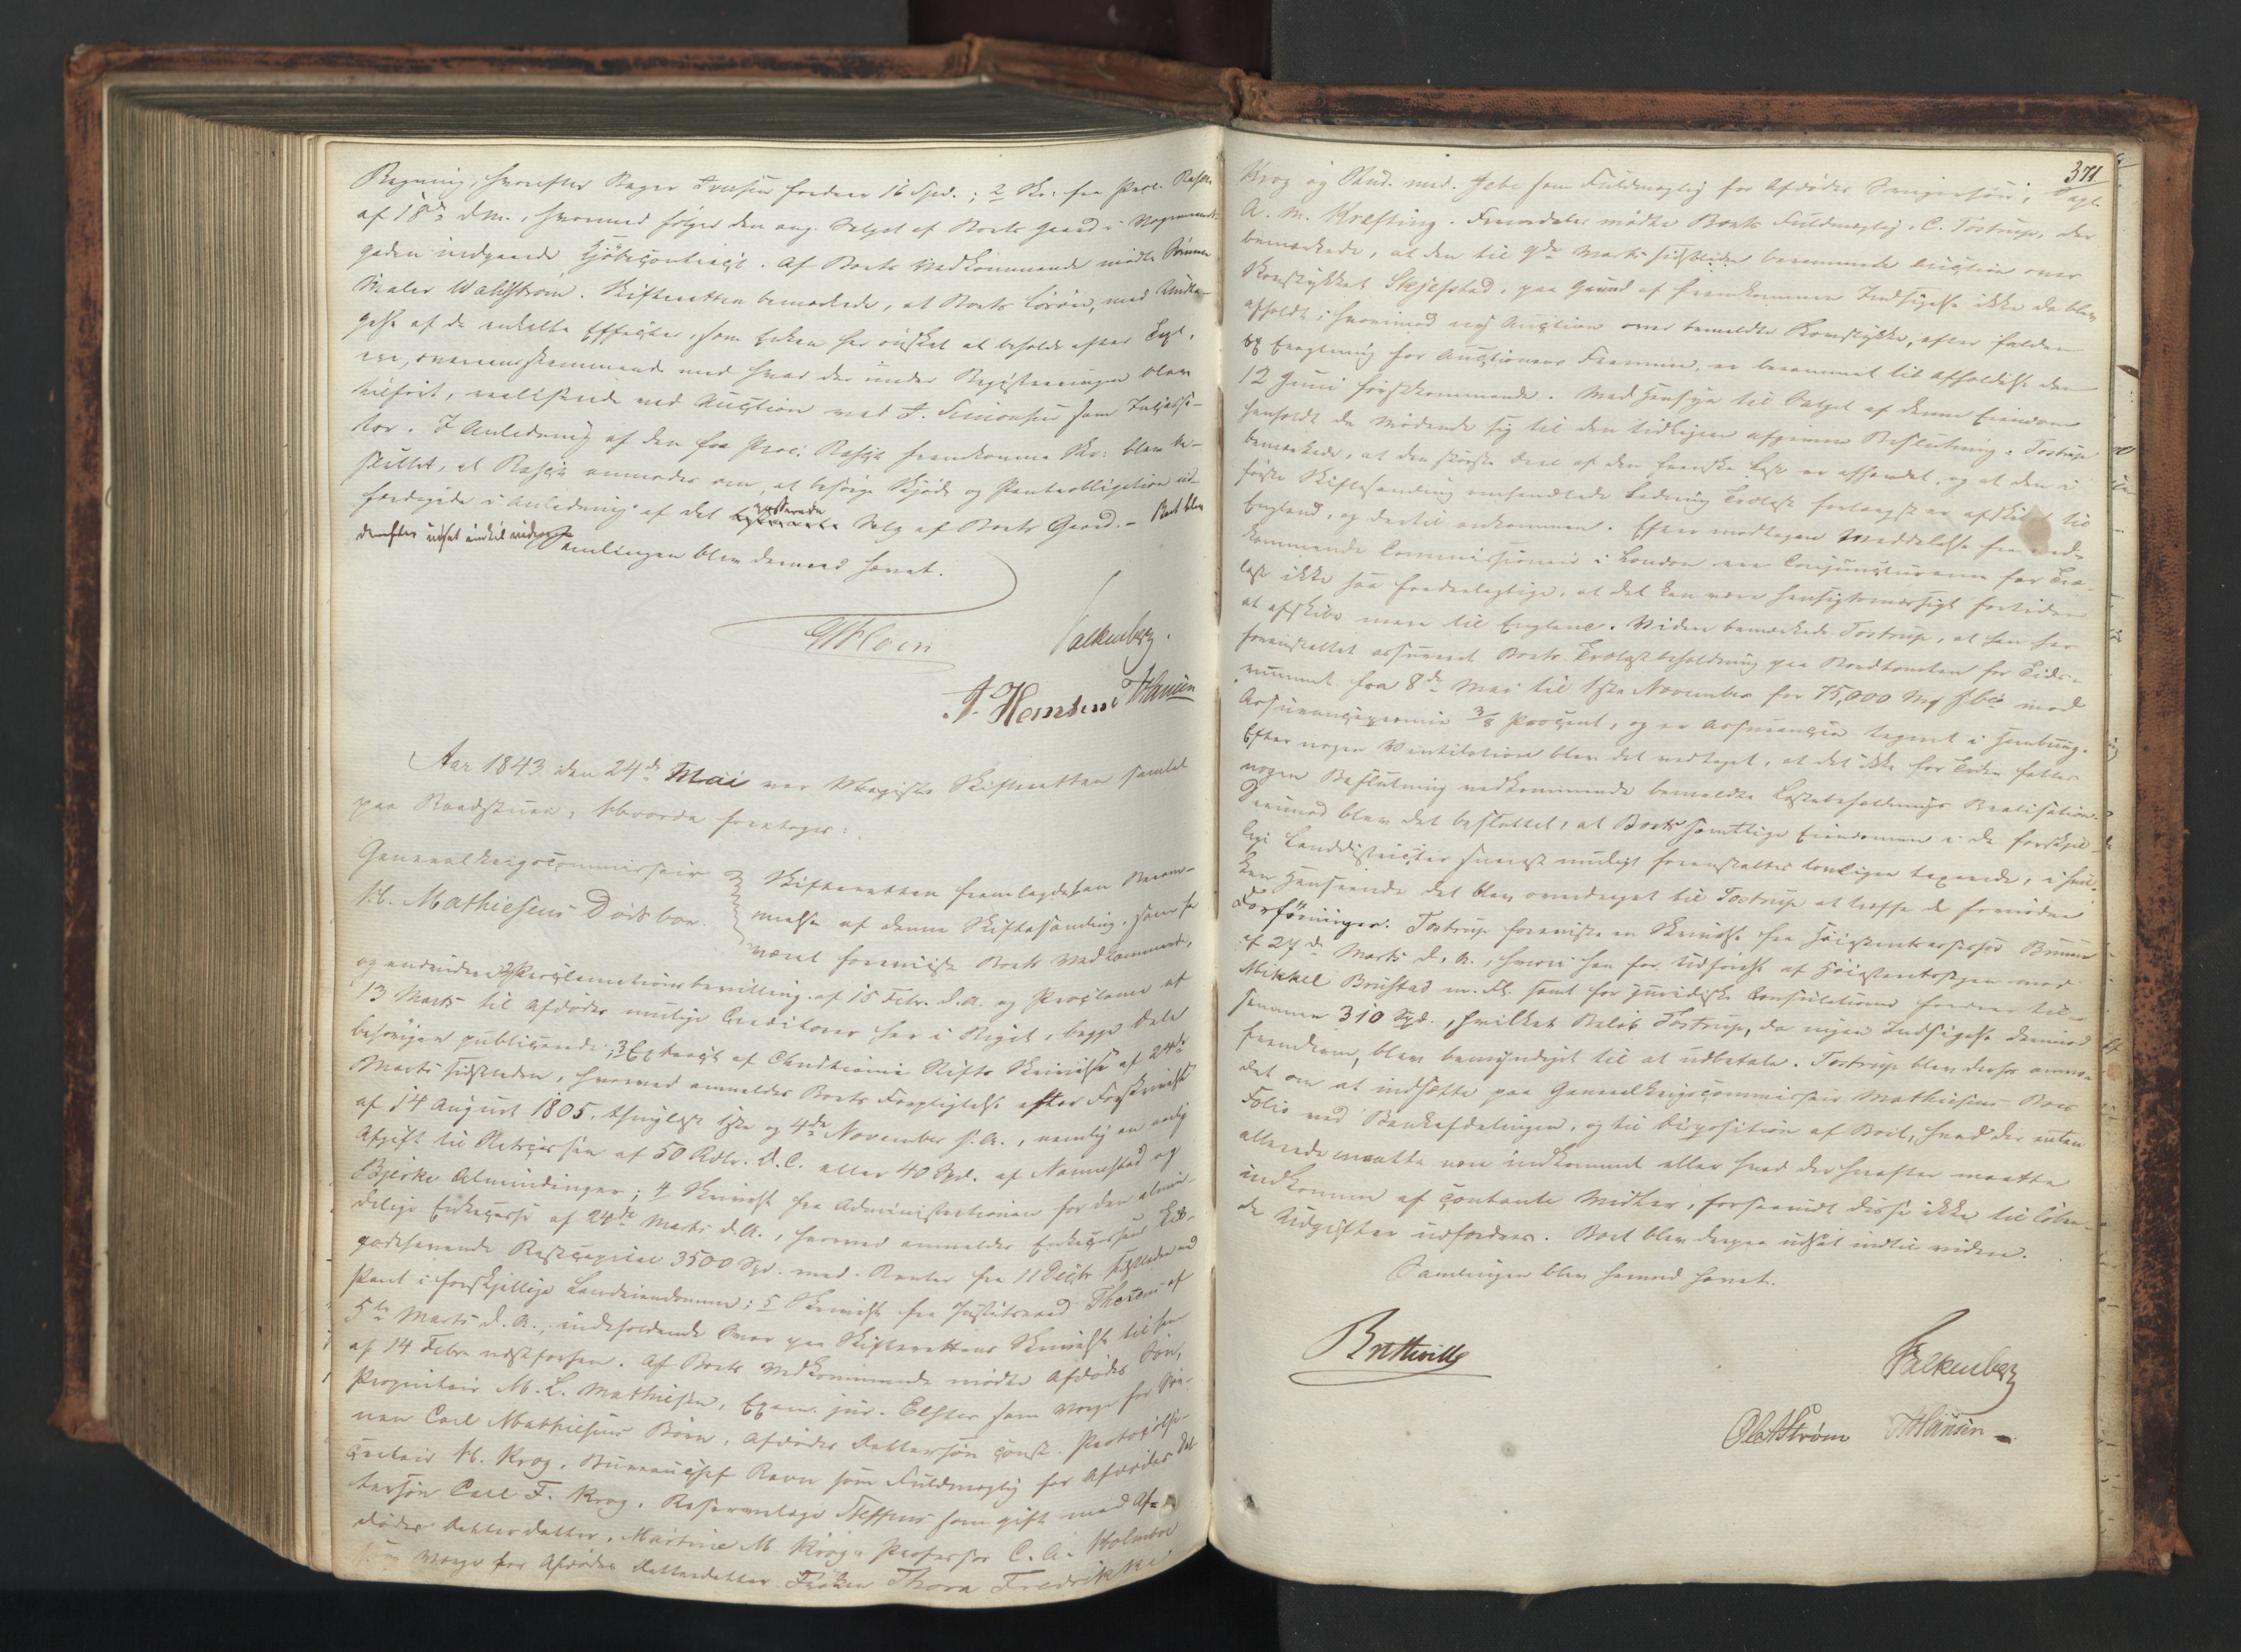 Regning, hvorefter Bager Iversen fordrer 16 Spd.; 2 Skr: fra Proc. Rasch
af 18de dM., hvormed følger den ang. Salget af Boets Gaard i Vognmands-
gaden indgaaede Kjöbecontract. Af Boets Vedkommende mødte
Maler Wahlstrøm. Skifteretten bemærkede, at Boets Løsøre, med Undta-
gelse af de enkelte Effecter, som Enken har ønsket at beholde efter Taxt.
en, overeensstemmende med hvad der under Registreringen blev
tilført, realiserede ved Auction med A. Simonsen som Incassa-
tor. I Anledning af den fra Proc. Rasch fremkomne Skr: blev be-
sluttet, at Rasch anmodes om, at besørge Skjöde og Panteobligation ud-
færdigede i Anledning af det passerede Salg af Boets Gaard. - Boet blev
derefter udsat indtil videre. Samlingen blev dermed hævet.
Falkenberg.
A. Hemsen THansen
Aar 1843 den 24de Mai var Christiania Skifteret samlet
paa Raadstuen, hvorda foretoges:
Generalkrigscommissair
H. Mathiesens Dödsboe.
Skifteretten fremlagde sin Beram-
melse af denne Skiftesamling, som har
været foreviist Boets Vedkommende,
og endvidere 2 Proclamationsbevilling af 15 Febr. d.A. og Proclama af
13 Marts til Afdödes mulige Creditorer her i Riget, begge Dele
behørigen publicerede; 3 Extract af Christiania Stifts Skrivelse af 24de
Marts sidstleden, hvorved anmeldes Boets Forpligtelse efter Forskrivelse
af 14 August 1805, thinglyst 1ste og 4de November s.A., nemlig en aarlig
Afgift til Statscassen af 50 Rdlr. D.C. eller 40 Spd. af Nannestad og
Bjerke Almindinger; 4 Skrivelse fra Administrationen for den almin-
delige Enkecasse af 24de Marts d.A., hvorved anmeldes Enkecassens Til-
godehavende Restcapital 3500 Spd. med Renter fra 11 Decbr. sidstleden med
Pant i forskjellige Landeiendomme; 5 Skrivelse fra Justitsraad Thesen af
5te Marts d.A., indeholdende Svar paa Skifterettens Skrivelse til ham
af 14 Febr. næstforhen. Af Boets Vedkommende mødte Afdödes Sön,
Proprietair M. L. Mathiesen, Exam. jur. Elster som Værge for Sön-
nen Carl Mathiesens Børn, Afdödes Dattersön const. Protocolse-
cretair H. Krog, Bureauchef Ravn som Fuldmægtig for Afdödes Dat-
tersön Carl F. Krog, Reservelæge Steffens som gift med Af-
dödes Datterdatter, Martine M. Krog, Professor C. A. Holmboe
som Værge for Afdödes Datterdatter Frøken Thora Fredrikke
371
Krog og Stud. med. Jebe som Fuldmægtig for Afdödes Svigersön, Capt.
A. M. Krefting. Fremdeles mødte Boets Fuldmægtig, C. Tostrup, der
bemærkede, at den til 9de Marts sidstleden berammede Auction over
Kornstykket Skjefstad, paa Grund af fremkommen Indsigelse ikke da blev
afholdt; hvorimod ny Auction over bemeldte Kornstykke, efter falden
Eragtning for Auctionens Fremme, er berammet til Afholdelse den
12 Juni förstkommende. Med Hensyn til Salget af denne Eiendom
henholdt de Mødende sig til den tidligere afgivne Beslutning. Tostrup
bemærkede, at den störste Deel af den franske Last er afhændet, og at den i
første Skiftesamling omhandlede Ladning Trælast forlængst er afskibet til
England, og dertil ankommen. Efter modtagen Meddelelse fra ved-
kommende Commissionair i London ere Conjuncturerne for Træ-
last ikke saa fordeelagtige, at det kan være hensigtsmæssigt for Tiden
at afskibe mere til England. Videre bemærkede Tostrup, at han har
foranstaltet assureret Boets Trælastbeholdning paa Bordtomten for Tids-
rummet fra 8de Mai til 1ste November for 75,000 Mk Hbco mod
Assurancepremie 3/8 Procent, og er Assurancen tegnet i Hamburg.
Efter nogen Ventilation blev det vedtaget, at det ikke for Tiden fattes
nogen Beslutning vedkommende bemeldte Lastebeholdnings Realisation.
Derimod blev det besluttet, at Boets samtlige Eiendomme i de forskjel-
lige Landdistricter snarest muligt foranstaltes lovligen taxerede, i hvil-
ken Henseende det blev overdraget til Tostrup at træffe de fornödne
Forføininger. Tostrup foreviste en Skrivelse fra Höiesteretsassessor Bruun
af 27de Marts d. A., hvori han for Udførelse af Höiesteretssagen mod
Mikkel Brustad m. Fl. samt for juridiske Consulationer fordrer til-
sammen 310 Spd., hvilket Beløb Tostrup, da ingen Indsigelse derimod
fremkom, blev bemyndiget til at udbetale. Tostrup blev derhos anmo-
det om at indsætte paa Generalkrigscommissair Mathiesens Boes
Folio ved Bankafdelingen, og til Disposition af Boet, hvad der enten
allerede maatte være indkommet eller hvad der herefter maatte
indkomme af contante Midler, forsaavidt disse ikke til löben-
de Udgifter udfordres. Boet blev derpaa udsat indtil videre.
Samlingen blev hermed hævet.
Bretteville
Falkenberg
Ole A Strøm THansen